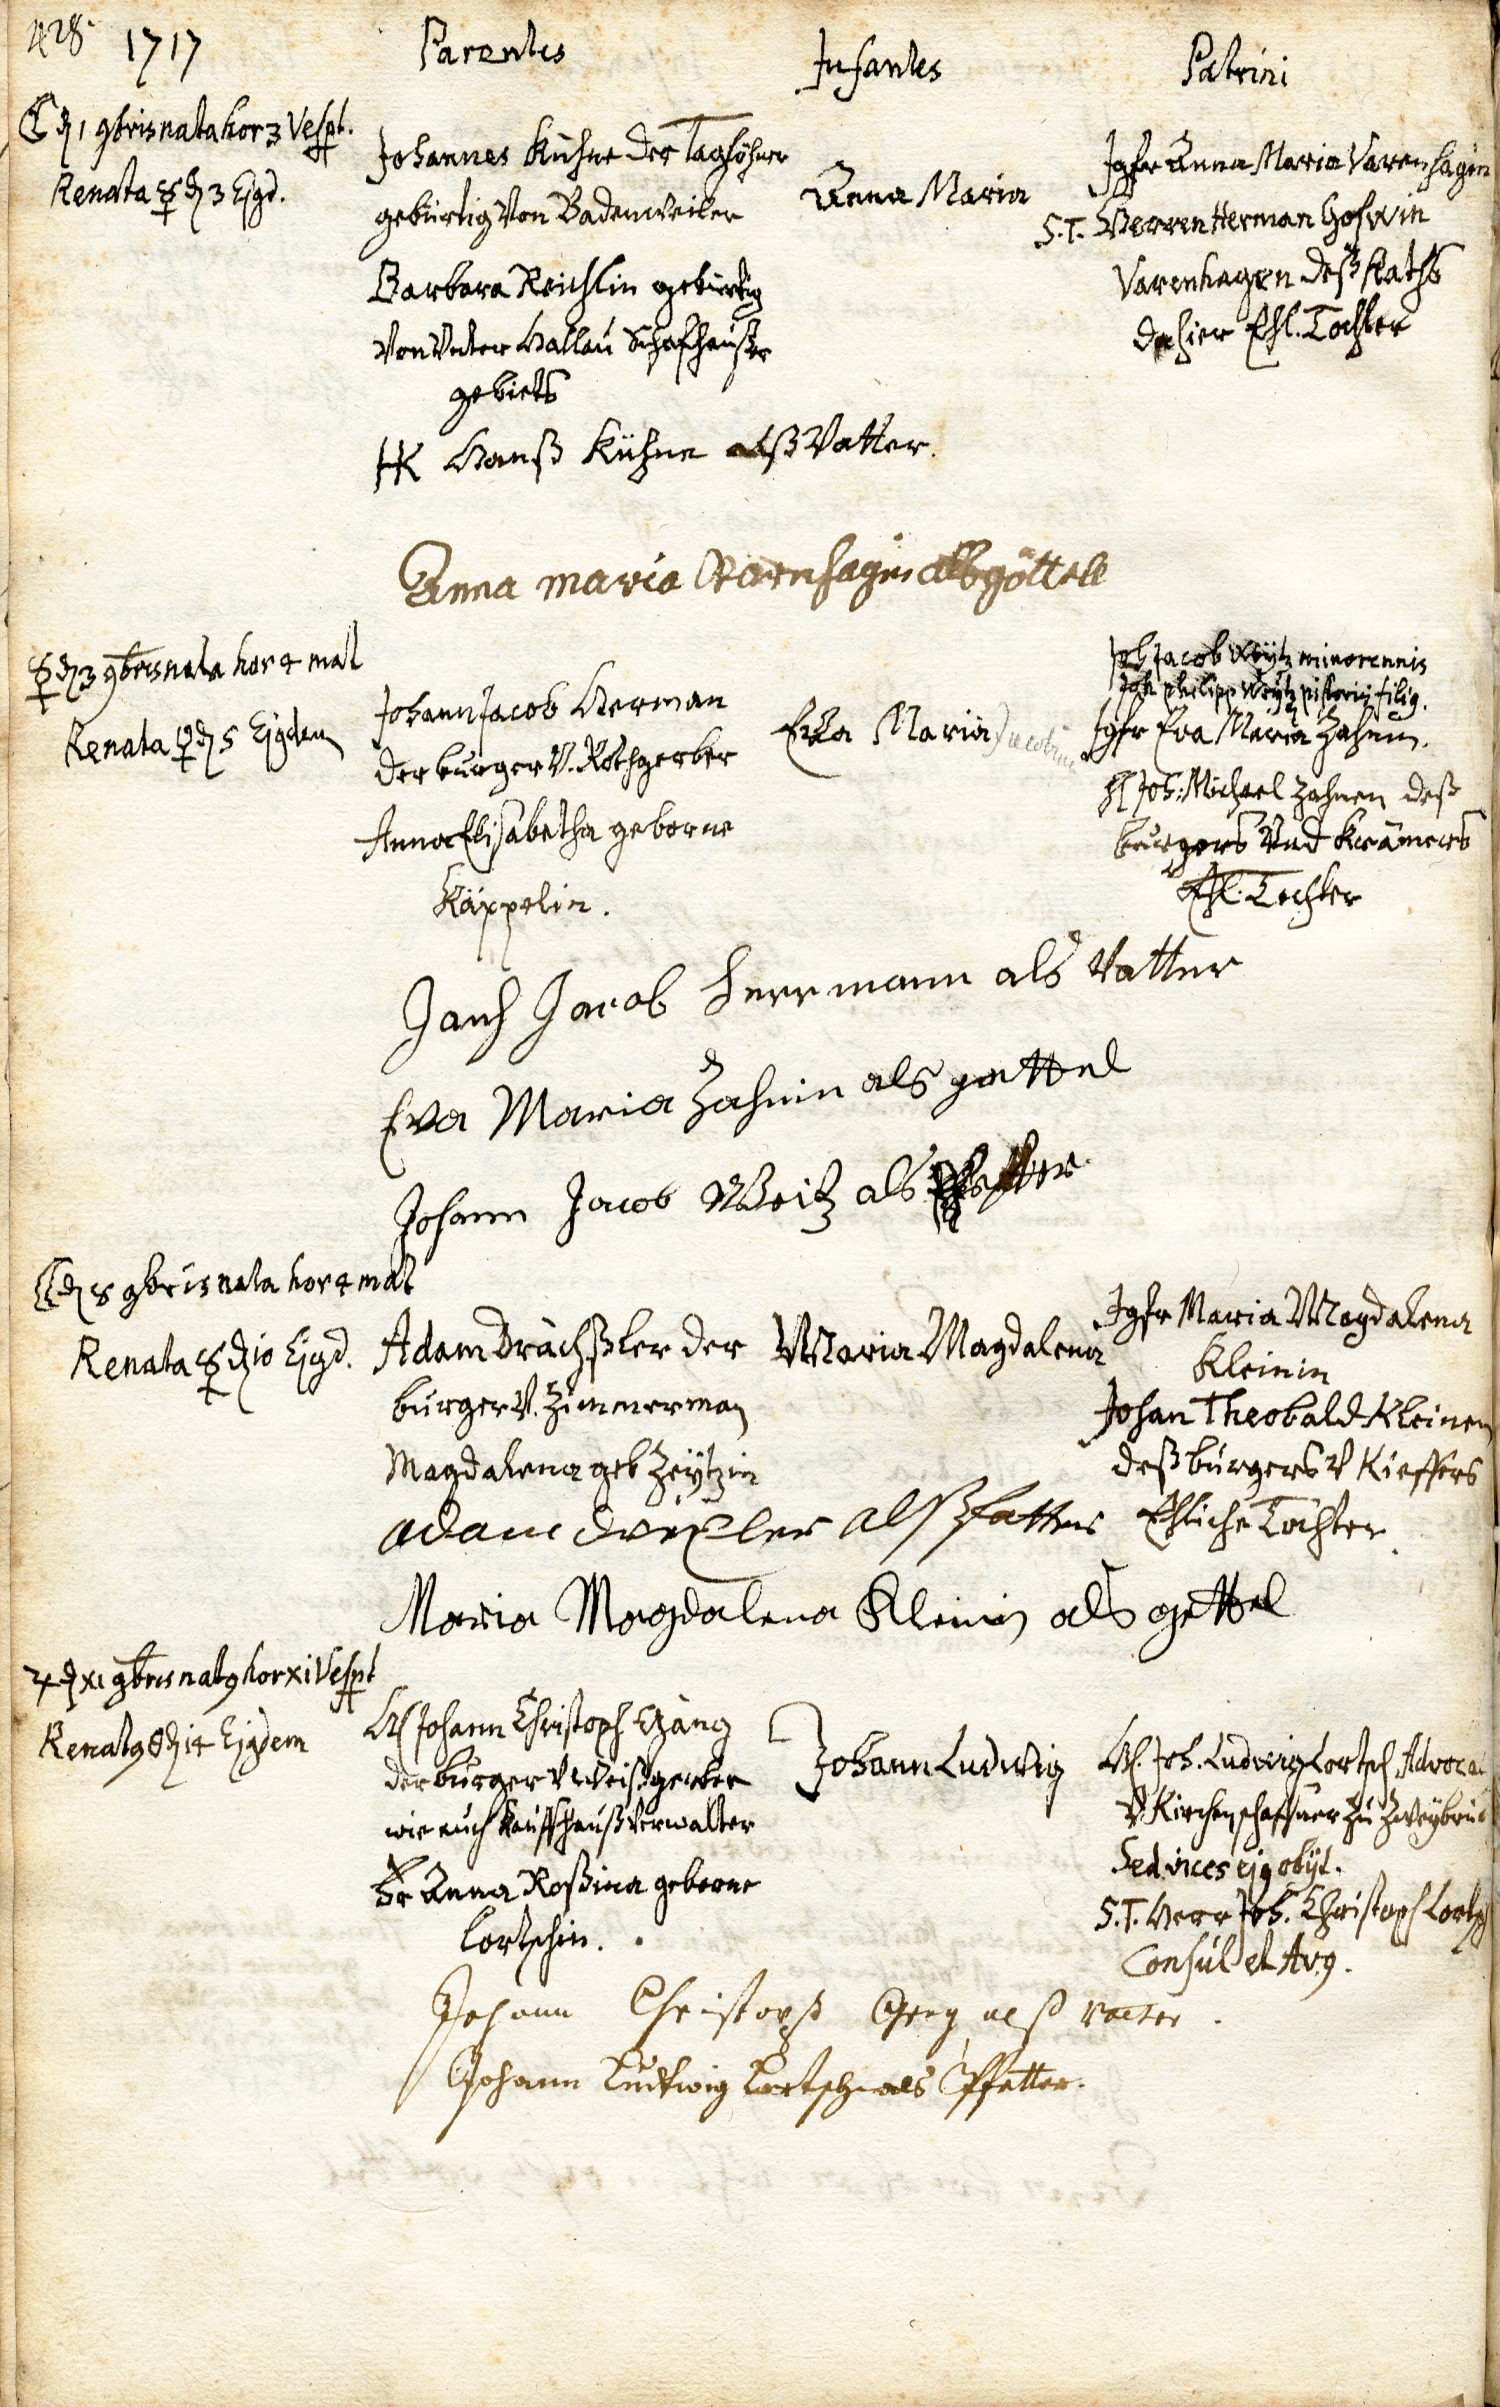 428 1717
Parentes
Infantes
Patrini
☾ d 1 9bris nata hor 3 Vesp̃t.
Renata ☿ d 3 Ejgd.
Johannes Kühne der Taglöhner
gebürtig von Badenweiler
Barbara Reichlin gebürtig
Von Unter Hallau Schafhauser
gebiets
Anna Maria
Jgfr Anna Maria Varenhagin
S. T. Herren Herman Goswin
Varenhagen deß Raths
dahier Ehl. Tochter
HK Hanß Kühne alß Vatter.
Anna maria Varnhagin alß göttell
☿ d 3 9bris nata hor 4 mat
Renata ♀ d 5 Ejgdem
Johann Jacob Herman
der burger V. Rothgerber
Anna Elisabetha geborne
Käppelin.
Eva Maria Jacobine
Joh Jacob Weytz minorennis
Joh philipp Weytz pistoris filig.
Jgfr Eva Maria Zahnin.
H Joh: Michael Zahnen deß
burgers Und Krämers
Ehl. Tochter
Jacob Herrmann als Vatter
Eva Maria Zahnin als gettel
Johann Jacob Weitz als Pfetter
☾ d 8 9bris nata hor 4 mat
Renata ☿ d 10 Ejgd.
Adam Drächßler der
burger V. Zimmerman
Magdalena geb Zeytzin
Maria Magdalena
Jgfr Maria Magdalena
Kleinin
Johan Theobald Kleinen
deß burgers V Kieffers
Ehliche Tochter.
adam drexler alß fatter
Maria Magdalena Kleinin als gettel
♃ d XI 9bris nat9 hor XI Vesp̃t
Renat9 d 14 Ejgdem
H Johann Christoph
der burger V Weißgerber
wie auch Kauffhauß Verwalter
Fr Anna Roßina geborne
Lortschin.
Johann Ludwig
H. Joh. Ludwig Lortsch Advoca
V Kirchenschaffner zu Zweybrü
Sed vices ejg obijt.
S. T. Herr Joh. Christoph Lortsch
Consul et Avg.
Johann Christoph alß vatter.
Johann Ludwig Lortsch als Pfetter.